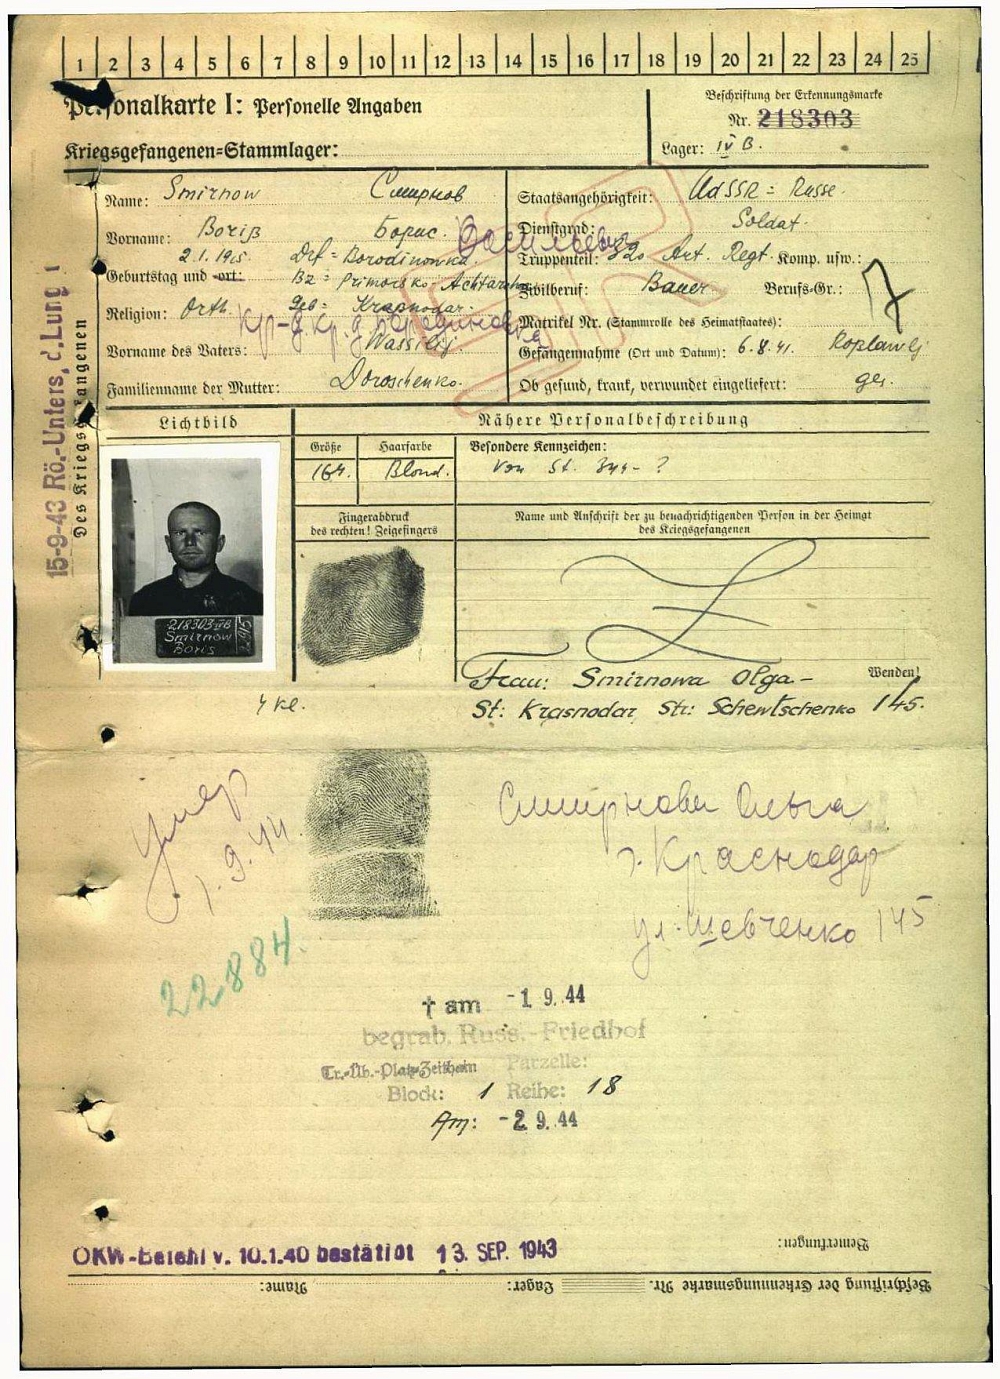 1 2 3 4 5 6 7 8 9 10 11 12 13 14 15 16 17 18 19 20 21 22 23 24 25
Personalkarte I: Personelle Angaben
Kriegsgefangenen=Stammlager:
Beschriftung der Erkennungsmarke
Nr. 218303
Lager: IV B.
Des Kriegsgefangenen
15-9-43 Rö.-Unters. d. Lung
Name: Smirnow Смирнов
Vorname: Boriß Борис. Васильевич
2.1.1915. Drf = Borodinowka.
Geburtstag und -ort: Bz = Primorsko-Achtarska
Religion: Orth. Geb = Krasnodar.
Vorname des Vaters: Wassilij.
Familienname der Mutter: Doroschenko.
Staatsangehörigkeit: UdSSR = Russe.
Dienstgrad: Soldat.
Truppenteil: 820 Art. Regt. Komp. usw.:
Zivilberuf: Bauer Berufs-Gr.: 7
Matrikel Nr. (Stammrolle des Heimatstaates):
Gefangennahme (Ort und Datum): 6.8.41.
Ob gesund, krank, verwundet eingeliefert: ges.
Lichtbild
Nähere Personalbeschreibung
Größe Haarfarbe Besondere Kennzeichen:
164. Blond. Von St.
Fingerabdruck
des rechten! Zeigefingers
Name und Anschrift der zu benachrichtigenden Person in der Heimat
des Kriegsgefangenen
218303 IVB
Smirnow
Boris
1915
Wenden!
Frau: Smirnowa Olga-
St: Krasnodar Str: Schewtschenko 145.
4 kl.
умер
1.9.44
22884.
Смирнова Ольга
г. Краснодар
ул. Шевченко 145
† am -1. 9. 44
begrab. Russ.-Friedhof
Tr.-Üb.-Platz Zeithain Parzelle:
Block: 1 Reihe: 18
Am: -2. 9. 44
OKW-Befehl v. 10.1.40 bestätigt 13. SEP. 1943
Bemerkungen:
Name: Lager: Beschriftung der Erkennungsmarke Nr.